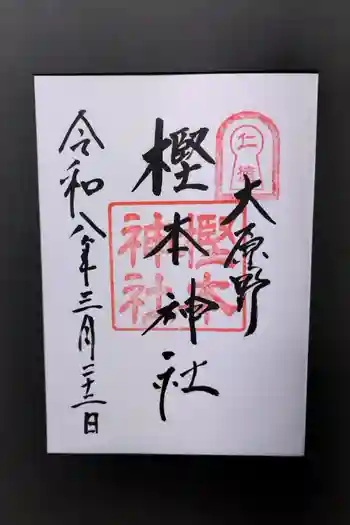 大原野
樫本神社
令和八年三月二十二日
樫本
神社